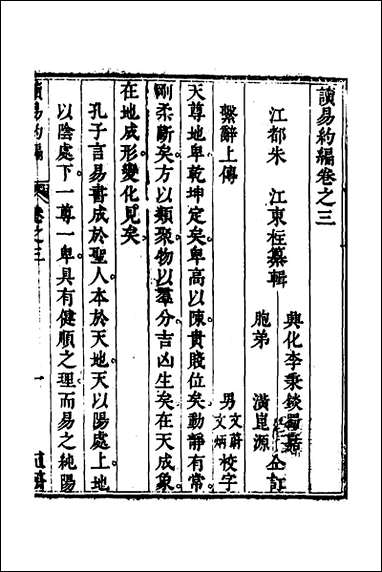 讀易約編卷之三
江都朱 江東柱纂輯
典化李秉錟
胞弟 潢崑源 仝訂
繫辭上傳
男 文蔚 文炳 校字
天尊地卑乾坤定矣卑高以陳貴賤位矣動靜有常
剛柔斷矣方以類聚物以羣分吉凶生矣在天成象
在地成形變化見矣
孔子言易書成於聖人本於天地天以陽處上地
以陰處下一尊一卑具有健順之理而易之純陽
讀易約編 卷之三 一